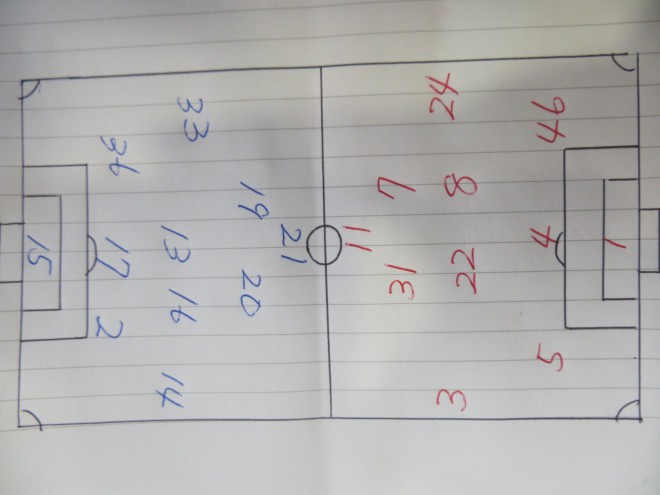 21
19 20
33 13 16 14
36 17 2
15
11
31 7
3 22 8 24
5 4 46
1